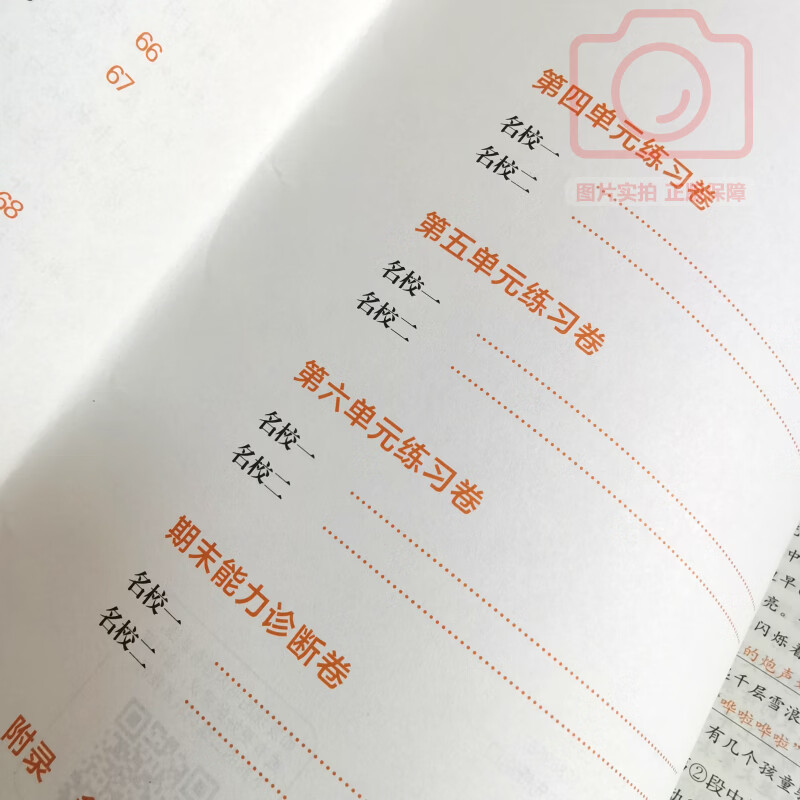 66
67
68
第四单元练习卷
名校一
名校二
第五单元练习卷
名校一
名校二
第六单元练习卷
名校一
名校二
期末能力诊断卷
名校一
名校二
附录
图片实拍 正版保障
中
早
亮。
闪烁着
的炮声
千层雪浪
哗啦哗啦
有几个孩童
②段中